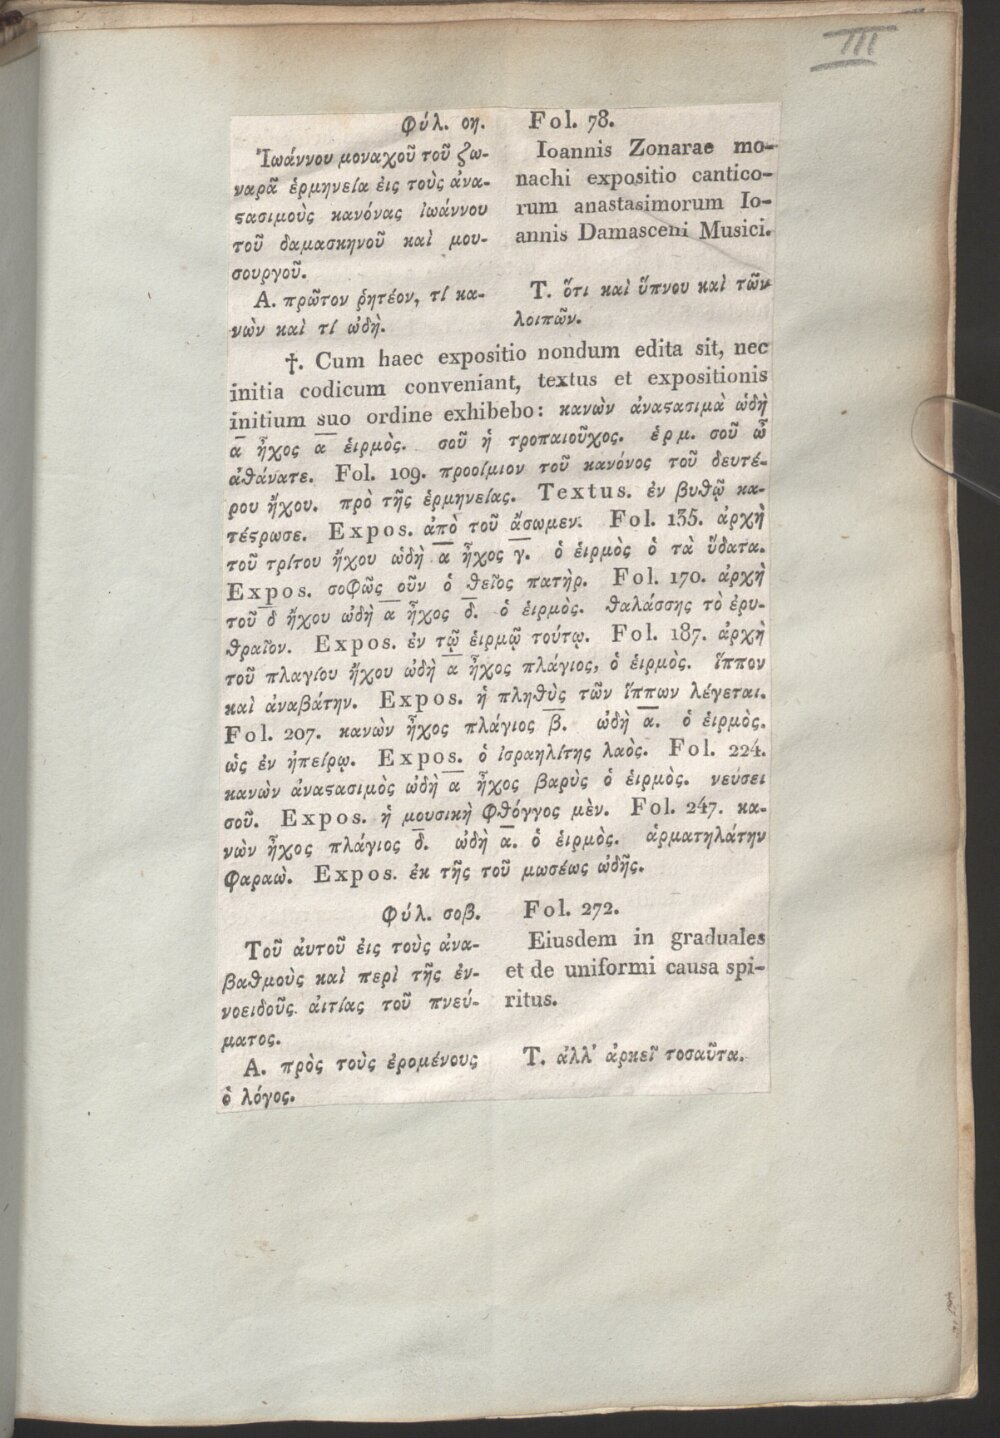 III
Φύλ. οη.
Ἰωάννου μοναχοῦ τοῦ ζω-
ναρᾶ ἑρμηνεία ἐις τοὺς ἀνα-
ςασιμοὺς κανόνας ἰωάννου
τοῦ δαμασκηνοῦ καὶ μου-
σουργοῦ.
Α. πρῶτον ῥητέον, τί κα-
νὼν καὶ τί ὠδὴ.
Fol. 78.
Ioannis Zonarae mo-
nachi expositio cantico-
rum anastasimorum Io-
annis Damasceni Musici.
T. ὅτι καὶ ὕπνου καὶ τῶν
λοιπῶν.
†. Cum haec expositio nondum edita sit, nec
initia codicum conveniant, textus et expositionis
initium suo ordine exhibebo: κανὼν ἀναςασιμὰ ὠδὴ
α̅ ἦχος α̅ ἑιρμὸς. σοῦ ἡ τροπαιοῦχος. ἑρμ. σοῦ ὦ
ἀθάνατε. Fol. 109. προοίμιον τοῦ κανόνος τοῦ δευτέ-
ρου ἤχου. πρὸ τῆς ἑρμηνείας. Textus. ἐν βυθῷ κα-
τέςρωσε. Expos. ἀπὸ τοῦ ἄσωμεν. Fol. 135. ἀρχὴ
τοῦ τρίτου ἤχου ὠδὴ α̅ ἦχος γ̅. ὁ ἑιρμὸς ὁ τὰ ὕδατα.
Expos. σοφῶς οῦν ὁ θεῖος πατὴρ. Fol. 170. ἀρχὴ
τοῦ δ̅ ἤχου ὠδὴ α̅ ἦχος δ̅. ὁ ἑιρμὸς. θαλάσσης τὸ ἐρυ-
θραῖον. Expos. ἐν τῷ ἑιρμῷ τούτῳ. Fol. 187. ἀρχὴ
τοῦ πλαγίου ἤχου ὠδὴ α̅ ἦχος πλάγιος, ὁ ἑιρμὸς. ἵππον
καὶ ἀναβάτην. Expos. ἡ πληθὺς τῶν ἵππων λέγεται.
Fol. 207. κανὼν ἦχος πλάγιος β̅. ὠδὴ α̅. ὁ ἑιρμὸς.
ὡς ἐν ἠπείρῳ. Expos. ὁ ἰσραηλίτης λαὸς. Fol. 224.
κανὼν ἀναςασιμὸς ὠδὴ α̅ ἦχος βαρὺς ὁ ἑιρμὸς. νεύσει
σοῦ. Expos. ἡ μουσικὴ φθόγγος μὲν. Fol. 247. κα-
νὼν ἦχος πλάγιος δ̅. ὠδὴ α̅. ὁ ἑιρμὸς. ἁρματηλάτην
φαραὼ. Expos. ἐκ τῆς τοῦ μωσέως ὠδῆς.
Φύλ. σοβ.
Τοῦ ἀυτοῦ ἐις τοὺς ἀνα-
βαθμοὺς καὶ περὶ τῆς ἑν-
νοειδοῦς ἀιτίας τοῦ πνεύ-
ματος.
Α. πρὸς τοὺς ἐρομένους
ὁ λόγος.
Fol. 272.
Eiusdem in graduales
et de uniformi causa spi-
ritus.
T. ἀλλ' ἀρκεῖ τοσαῦτα.